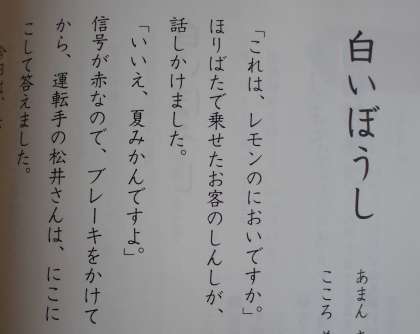 白いぼうし
あまん
こころ
「これは、レモンのにおいですか。」
ほりばたで乗せたお客のしんしが、
話しかけました。
「いいえ、夏みかんですよ。」
信号が赤なので、ブレーキをかけて
から、運転手の松井さんは、にこに
こして答えました。